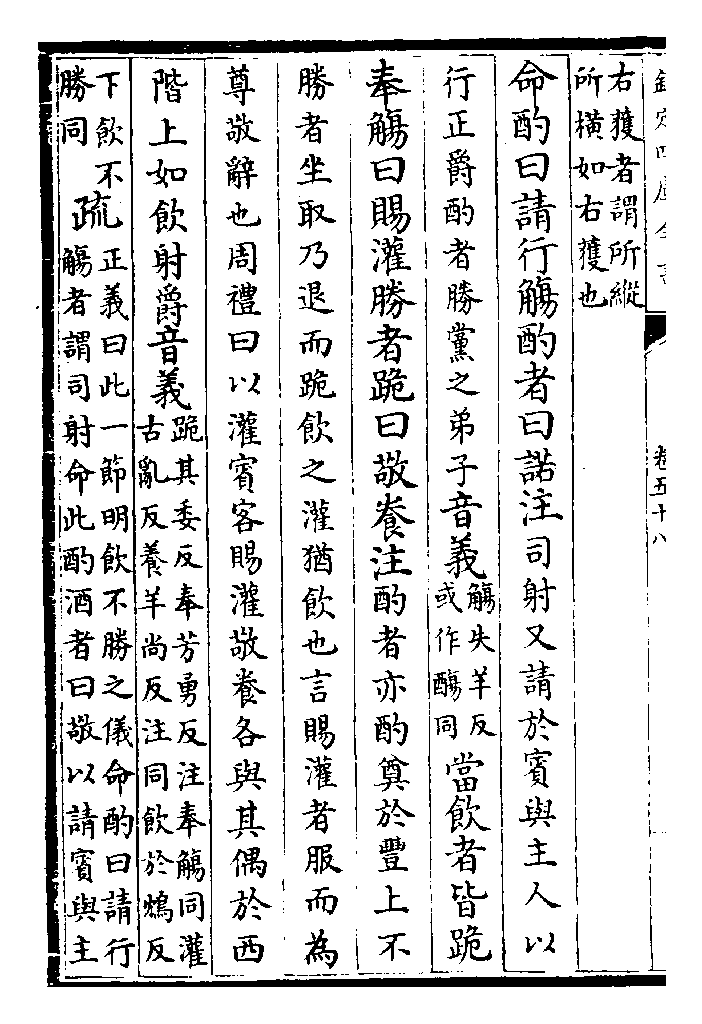 欽定四庫全書
卷五十八
右獲者謂所縱
所橫如右獲也
命酌曰請行觴酌者曰諾注司射又請於賓與主人以
行正爵酌者勝黨之弟子音義觴失羊反
或作䬕同當飲者皆跪
奉觴曰賜灌勝者跪曰敬養注酌者亦酌奠於豐上不
勝者坐取乃退而跪飲之灌猶飲也言賜灌者服而為
尊敬辭也周禮曰以灌賓客賜灌敬養各與其偶於西
階上如飲射爵音義跪其委反奉芳勇反注奉觴同灌
古亂反養羊尚反注同飲於鴆反
下飲不
勝同疏正義曰此一節明飲不勝之儀命酌曰請行
觴者謂司射命此酌酒者曰敬以請賓與主